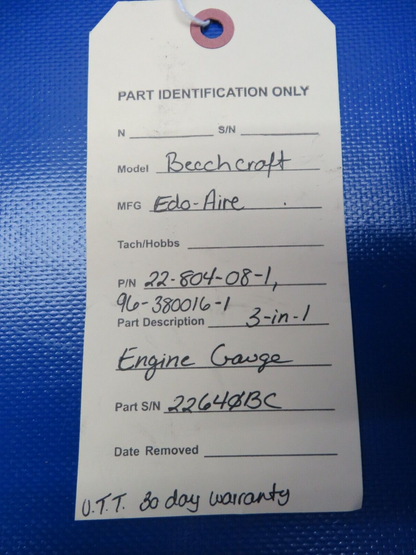 PART IDENTIFICATION ONLY
N S/N
Model Beechcraft
MFG Edo-Aire
Tach/Hobbs
P/N 22-804-08-1,
96-380016-1
Part Description 3-in-1
Engine Gauge
Part S/N 22640BC
Date Removed
U.T.T. 30 day warranty